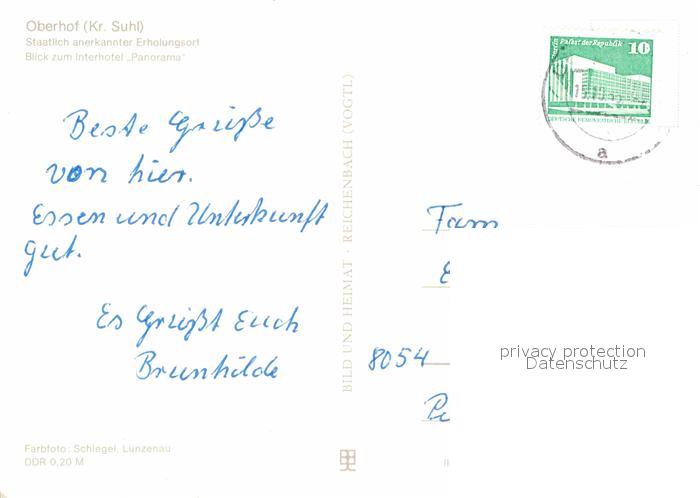 Oberhof (Kr. Suhl)
Staatlich anerkannter Erholungsort
Blick zum Interhotel „Panorama"
Beste Grüße
von hier.
Essen und Unterkunft
gut.
Es Grüßt Euch
Brunhilde
Farbfoto: Schlegel, Lunzenau
DDR 0,20 M
BILD UND HEIMAT · REICHENBACH (VOGTL)
Berlin Palast der Republik 10
DEUTSCHE DEMOKRATISCHE
a
Fam
8054
privacy protection
Datenschutz